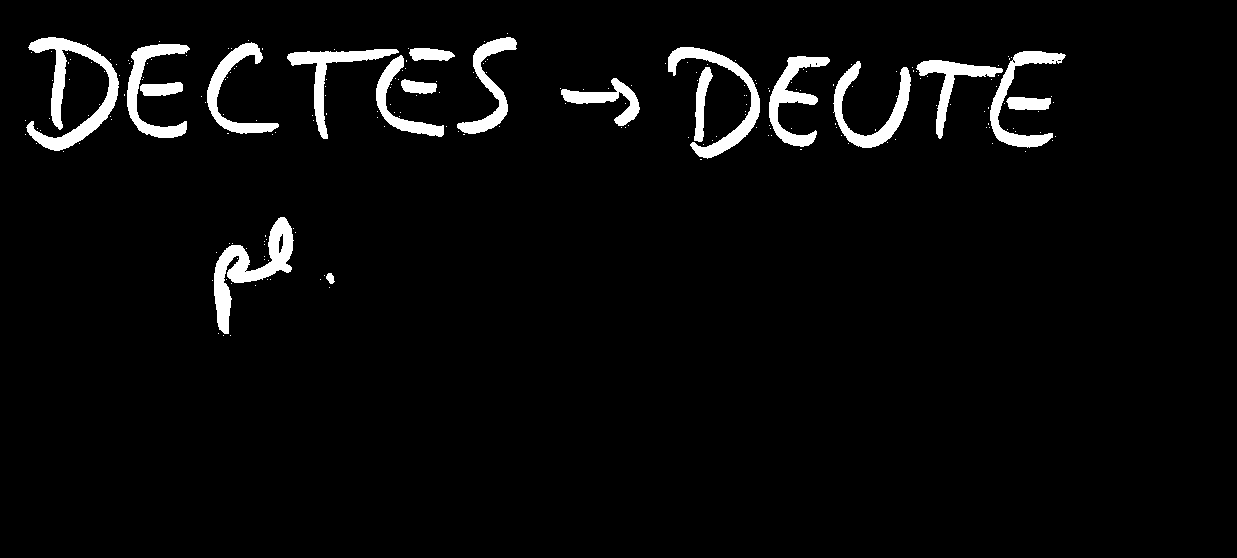 DECTES → DEUTE
pl.